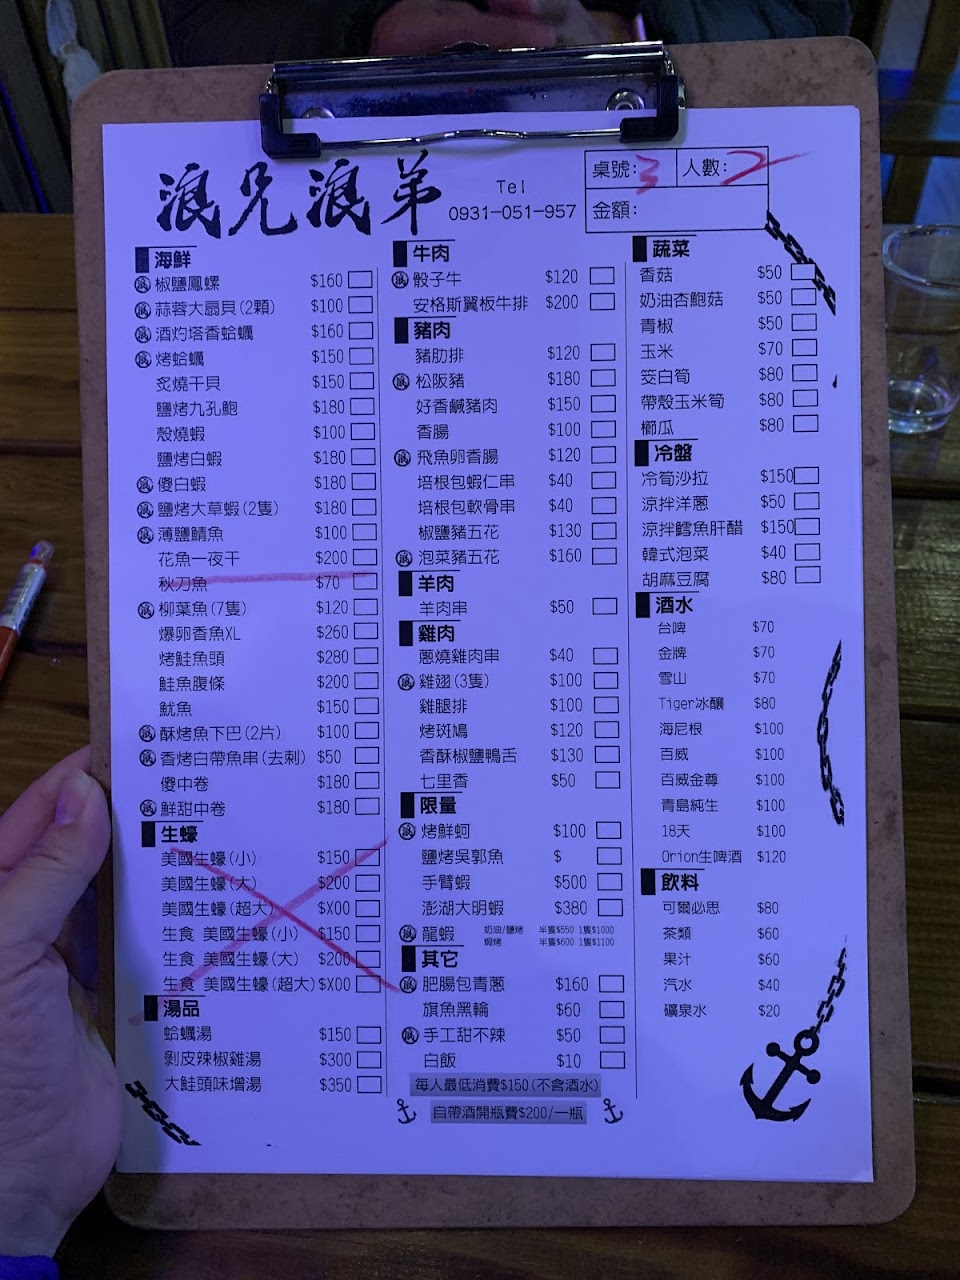 浪兄浪弟
Tel
0931-051-957
桌號:3 人數:2
金額:
海鮮
浪 椒鹽鳳螺 $160
浪 蒜蓉大扇貝(2顆) $100
浪 酒灼塔香蛤蠣 $160
浪 烤蛤蠣 $150
炙燒干貝 $150
鹽烤九孔鮑 $180
殼燒蝦 $100
鹽烤白蝦 $180
浪 傻白蝦 $180
浪 鹽烤大草蝦(2隻) $180
浪 薄鹽鯖魚 $100
花魚一夜干 $200
秋刀魚 $70
浪 柳葉魚(7隻) $120
爆卵香魚XL $260
烤鮭魚頭 $280
鮭魚腹條 $200
魷魚 $150
浪 酥烤魚下巴(2片) $100
浪 香烤白帶魚串(去刺) $50
傻中卷 $180
浪 鮮甜中卷 $180
生蠔
美國生蠔(小) $150
美國生蠔(大) $200
美國生蠔(超大) $X00
生食 美國生蠔(小) $150
生食 美國生蠔(大) $200
生食 美國生蠔(超大) $X00
湯品
蛤蠣湯 $150
剝皮辣椒雞湯 $300
大鮭頭味增湯 $350
牛肉
浪 骰子牛 $120
安格斯翼板牛排 $200
豬肉
豬肋排 $120
浪 松阪豬 $180
好香鹹豬肉 $150
香腸 $100
浪 飛魚卵香腸 $120
培根包蝦仁串 $40
培根包軟骨串 $40
椒鹽豬五花 $130
浪 泡菜豬五花 $160
羊肉
羊肉串 $50
雞肉
蔥燒雞肉串 $40
浪 雞翅(3隻) $100
雞腿排 $100
烤斑鳩 $120
香酥椒鹽鴨舌 $130
七里香 $50
限量
浪 烤鮮蚵 $100
鹽烤吳郭魚 $
手臂蝦 $500
澎湖大明蝦 $380
浪 龍蝦 奶油/鹽烤 半隻$550 1隻$1000
焗烤 半隻$600 1隻$1100
其它
浪 肥腸包青蔥 $160
旗魚黑輪 $60
浪 手工甜不辣 $50
白飯 $10
每人最低消費$150(不含酒水)
自帶酒開瓶費$200/一瓶
蔬菜
香菇 $50
奶油杏鮑菇 $50
青椒 $50
玉米 $70
筊白筍 $80
帶殼玉米筍 $80
櫛瓜 $80
冷盤
冷筍沙拉 $150
涼拌洋蔥 $50
涼拌鱈魚肝醋 $150
韓式泡菜 $40
胡麻豆腐 $80
酒水
台啤 $70
金牌 $70
雪山 $70
Tiger冰釀 $80
海尼根 $100
百威 $100
百威金尊 $100
青島純生 $100
18天 $100
Orion生啤酒 $120
飲料
可爾必思 $80
茶類 $60
果汁 $60
汽水 $40
礦泉水 $20